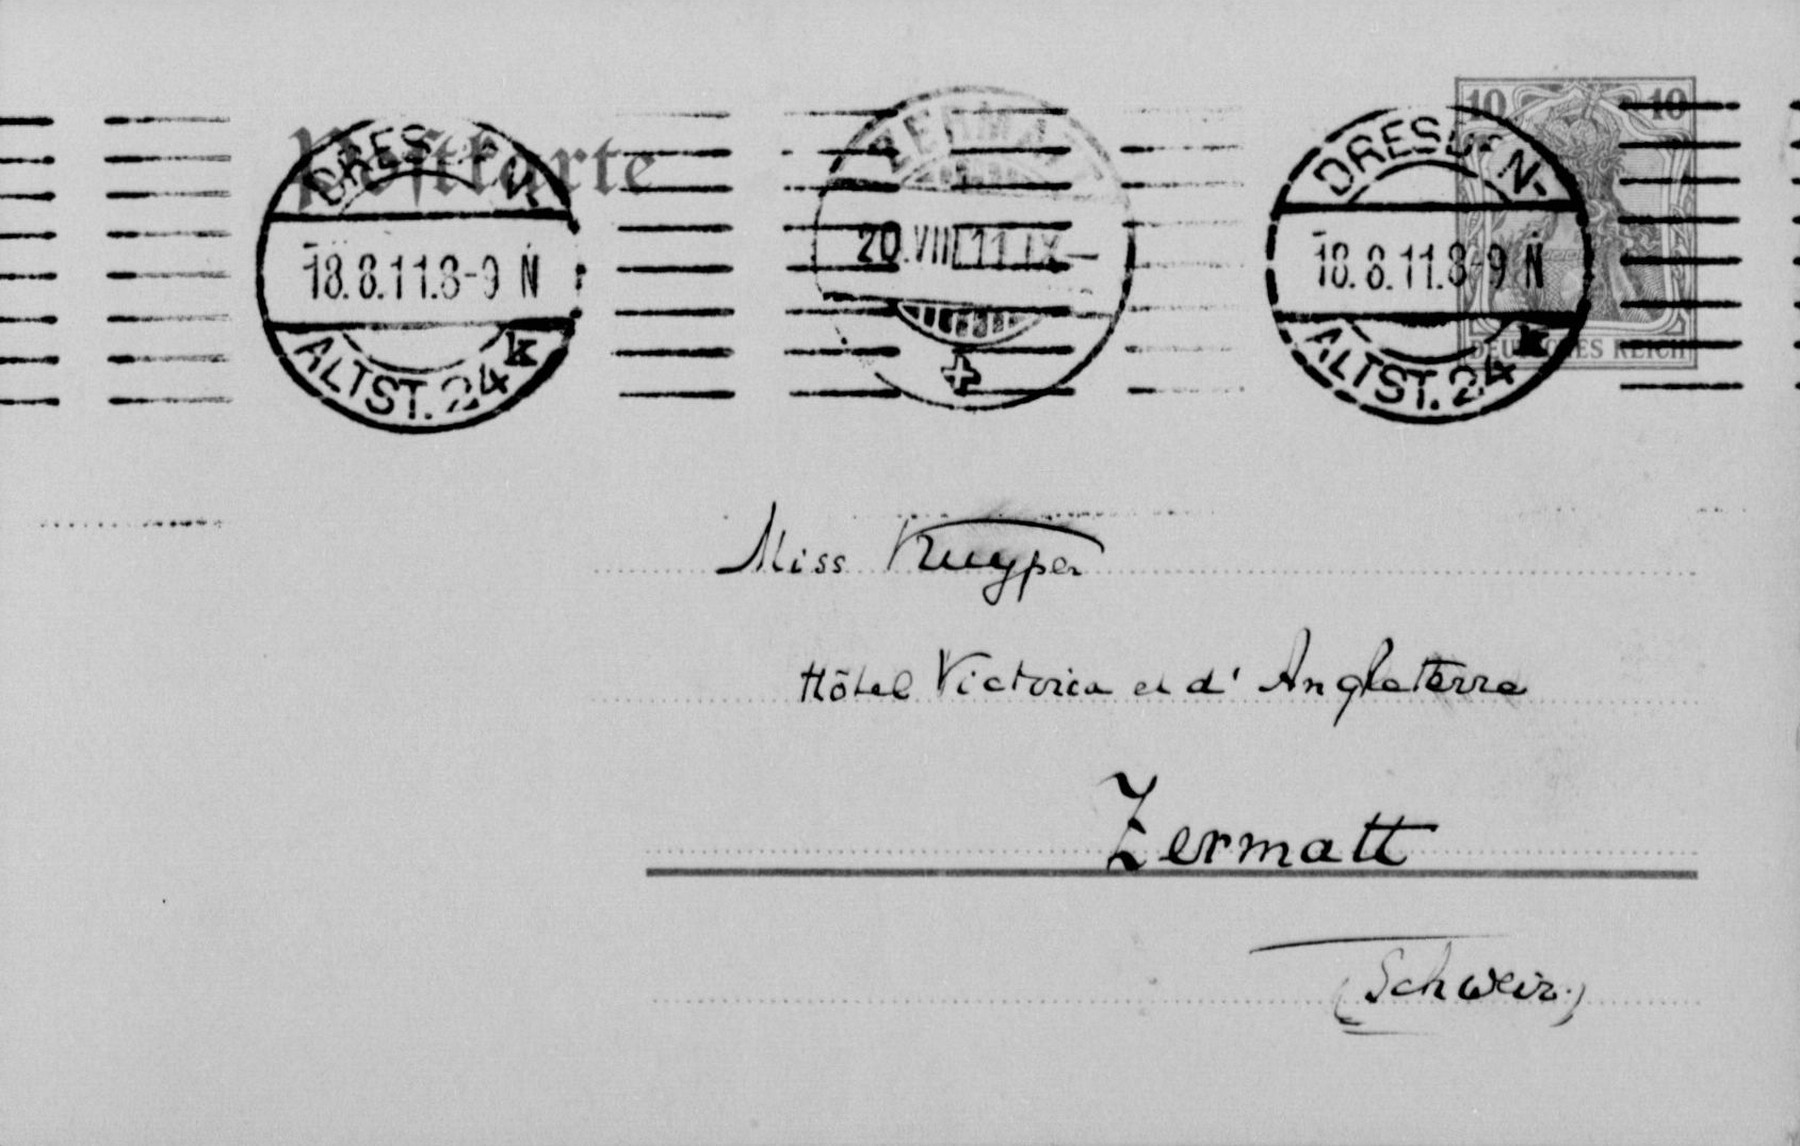 Postkarte
DRESDEN-
18.8.11.8-9 N
ALTST. 24 k
ZERMATT
20.VIII.11.IX–
DRESDEN-
18.8.11.8-9 N
ALTST. 24 k
10 10
DEUTSCHES REICH
Miss Kuyper
Hôtel Victoria et d'Angleterre
Zermatt
(Schweiz)